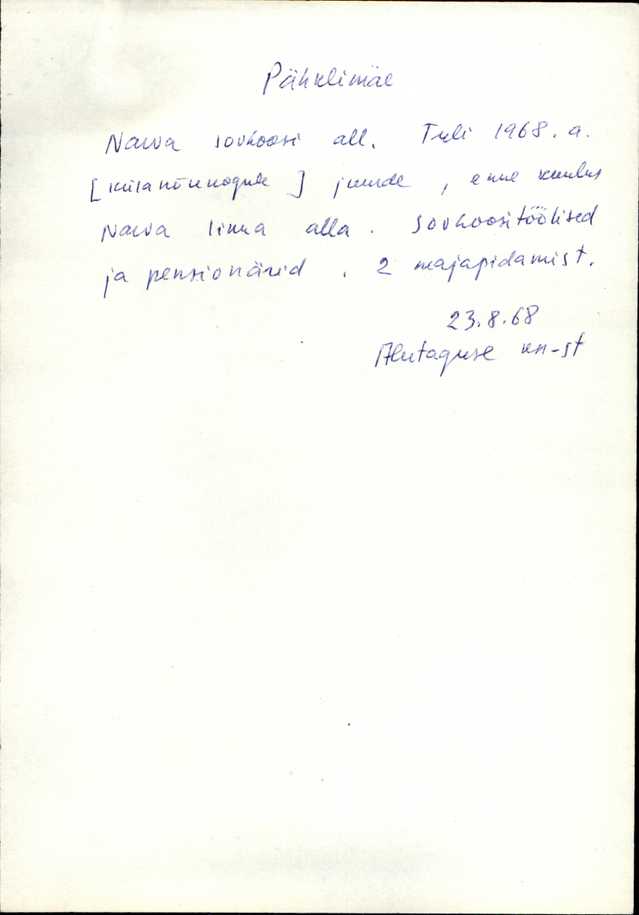 Pähklimäe
Narva sovhoosi all. Tuli 1968. a.
[külanõukogule] juurde, enne kuulus
Narva linna alla. Sovhoositöölised
ja pensionärid. 2 majapidamist.
23.8.68
Alutaguse kn-st